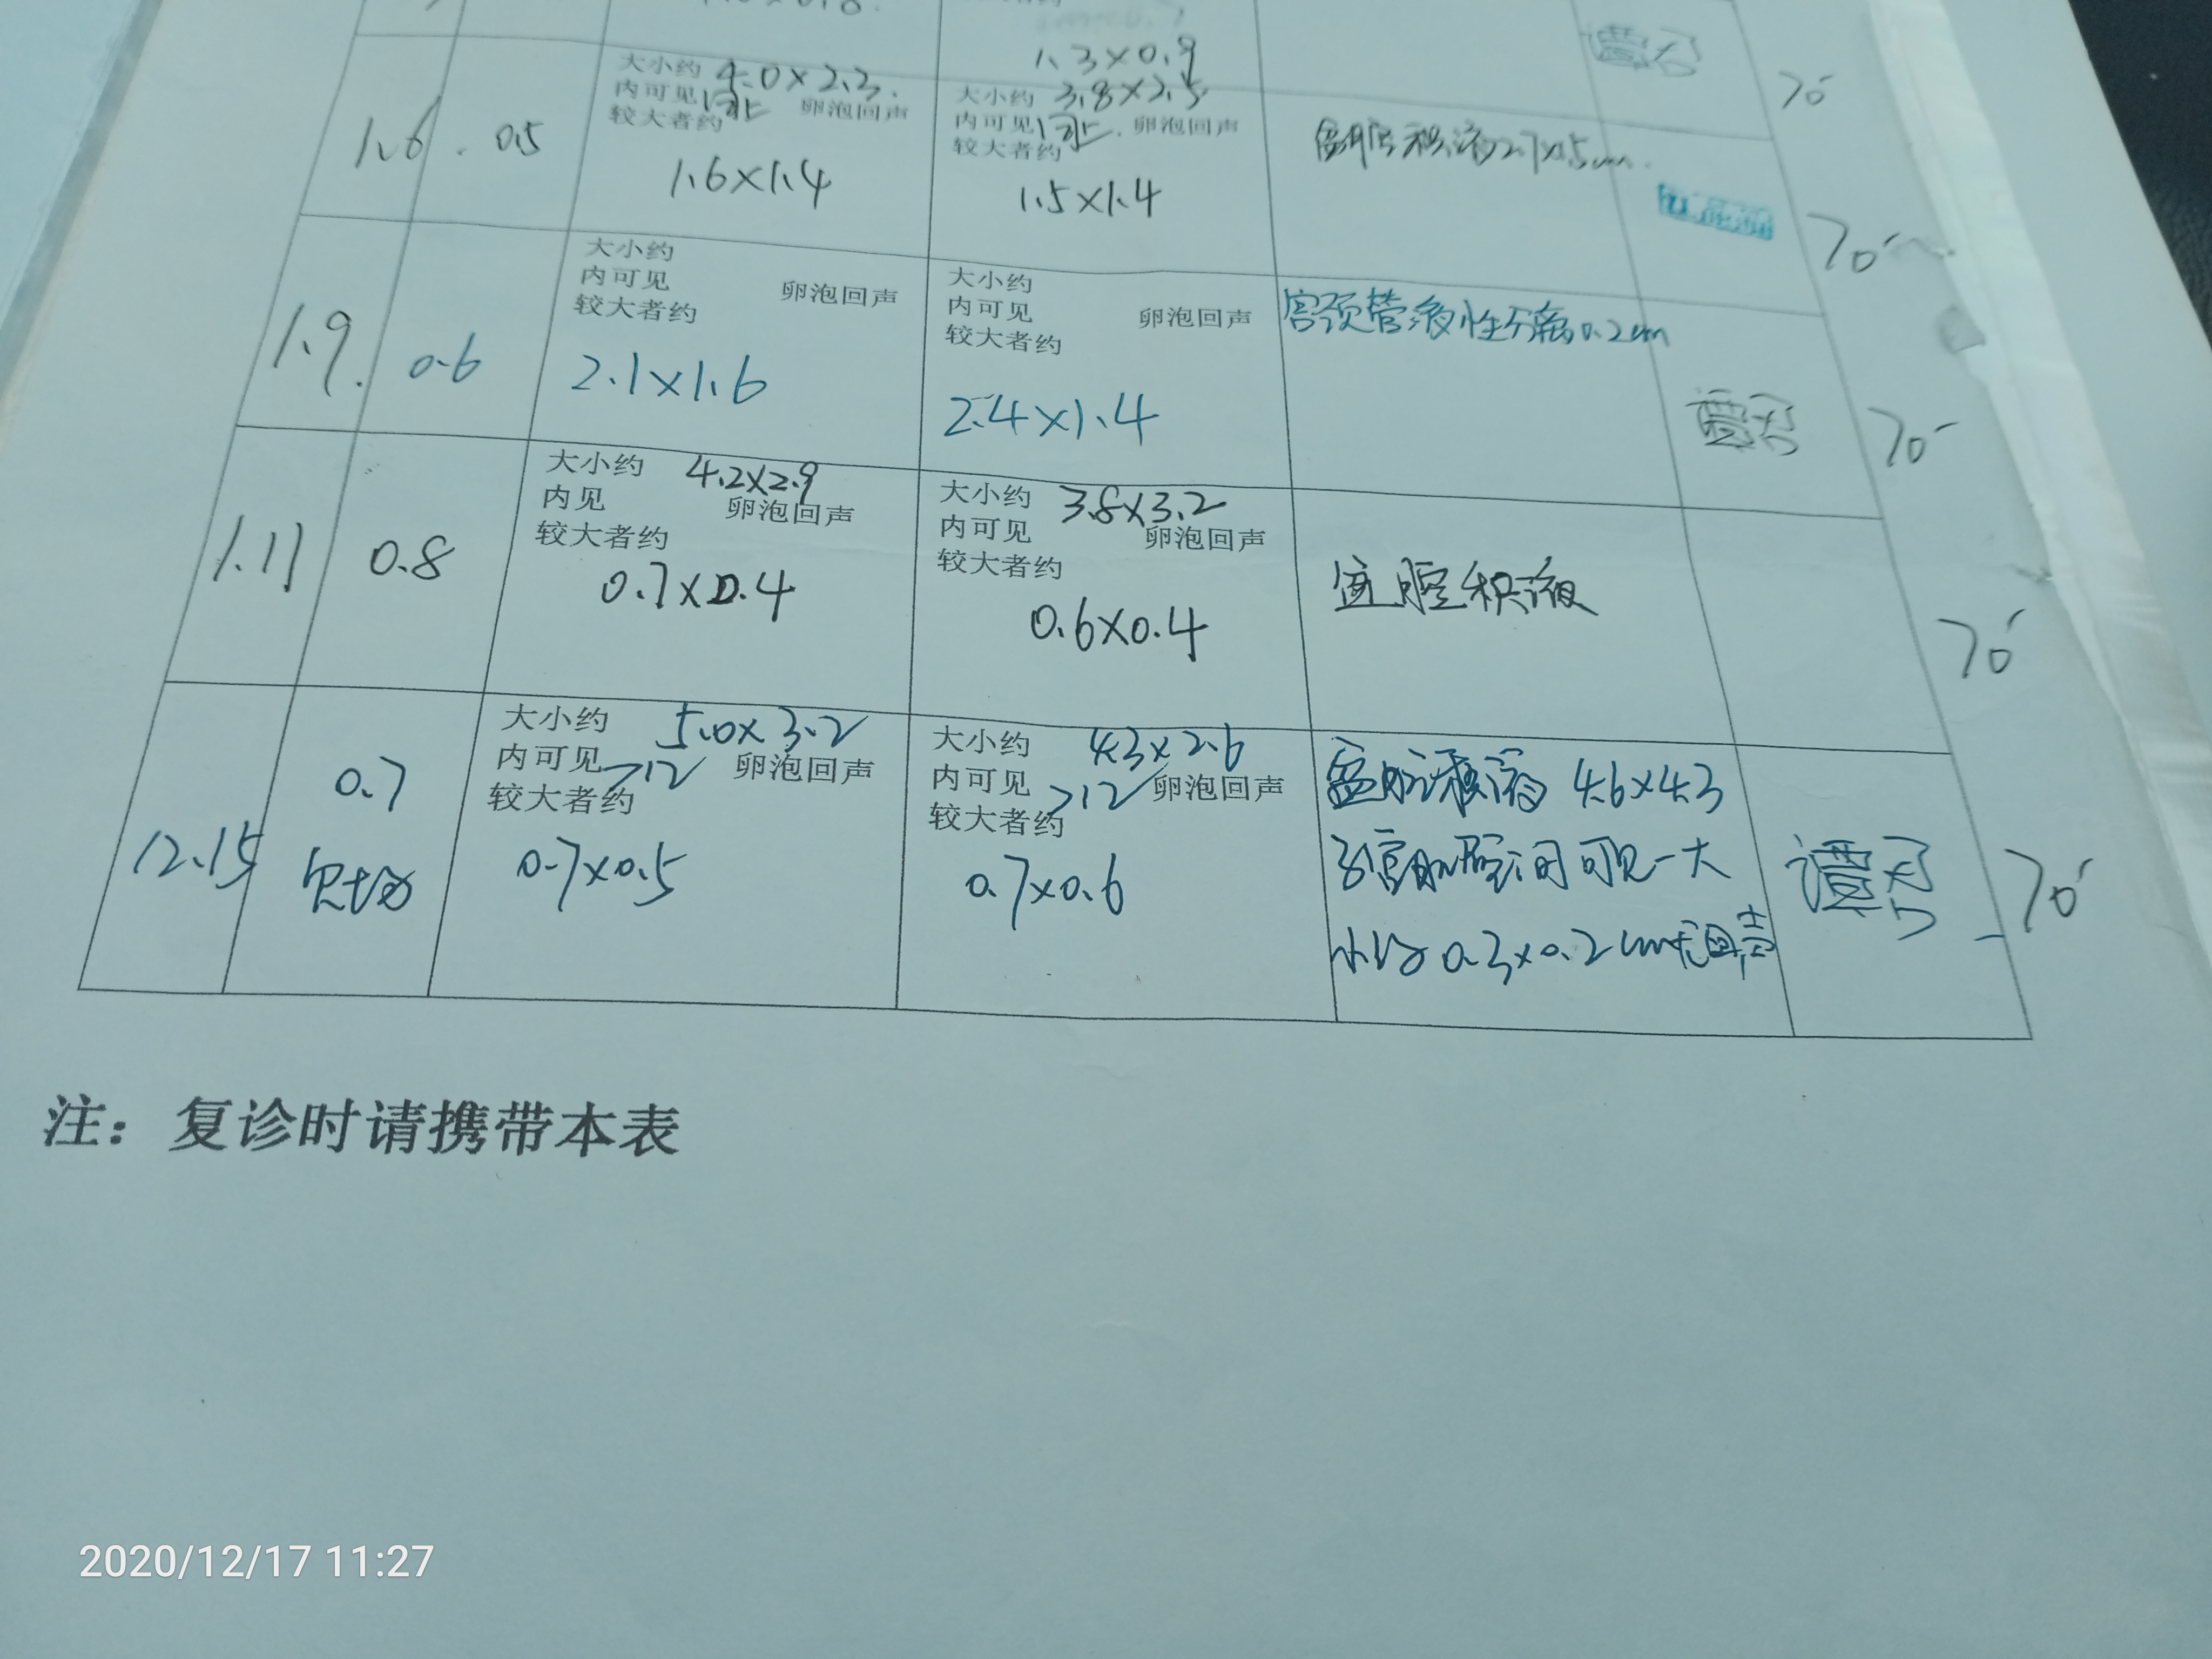 1.3×0.9
1.6 0.5 大小约 4.0×2.3 大小约 3.8×2.5
内可见 卵泡回声 内可见 卵泡回声 盆腔积液2.7×1.5cm
较大者约 较大者约
1.6×1.4 1.5×1.4
70
70
大小约 大小约
内可见 卵泡回声 内可见 卵泡回声 宫颈管液性分离0.2cm
较大者约 较大者约
1.9 0.6 2.1×1.6 2.4×1.4
70
大小约 4.2×2.9 大小约 3.8×3.2
内见 卵泡回声 内可见 卵泡回声
较大者约 较大者约
1.11 0.8 0.7×0.4 0.6×0.4 盆腔积液
70
大小约 5.0×3.2 大小约 4.3×2.6
内可见 >12 卵泡回声 内可见 >12 卵泡回声 盆腔积液 4.6×4.3
较大者约 较大者约
12.15 0.7 0.7×0.5 0.7×0.6 子宫肌壁间可见一大
小约 0.3×0.2cm无回声
谭
70
注：复诊时请携带本表
2020/12/17 11:27